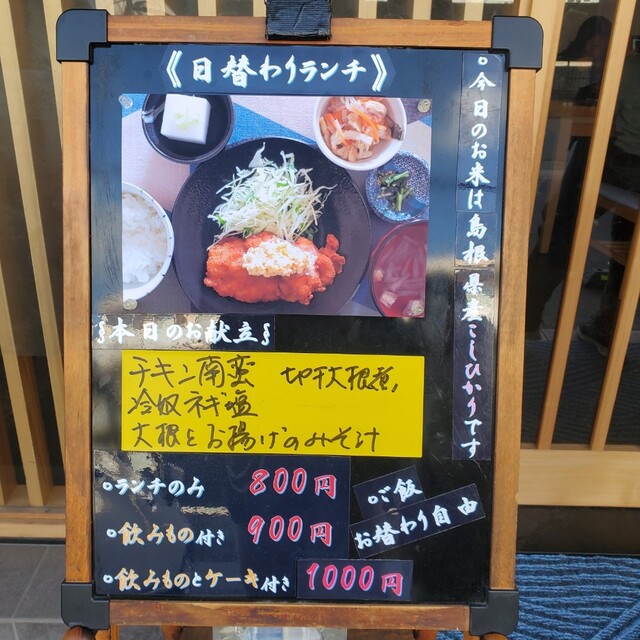 《日替わりランチ》
○今日のお米は島根県産こしひかりです
本日のお献立
チキン南蛮 切干大根煮
冷奴ネギ塩
大根とお揚げのみそ汁
○ランチのみ 800円
○飲みもの付き 900円
○飲みものとケーキ付き 1000円
○ご飯
お替わり自由